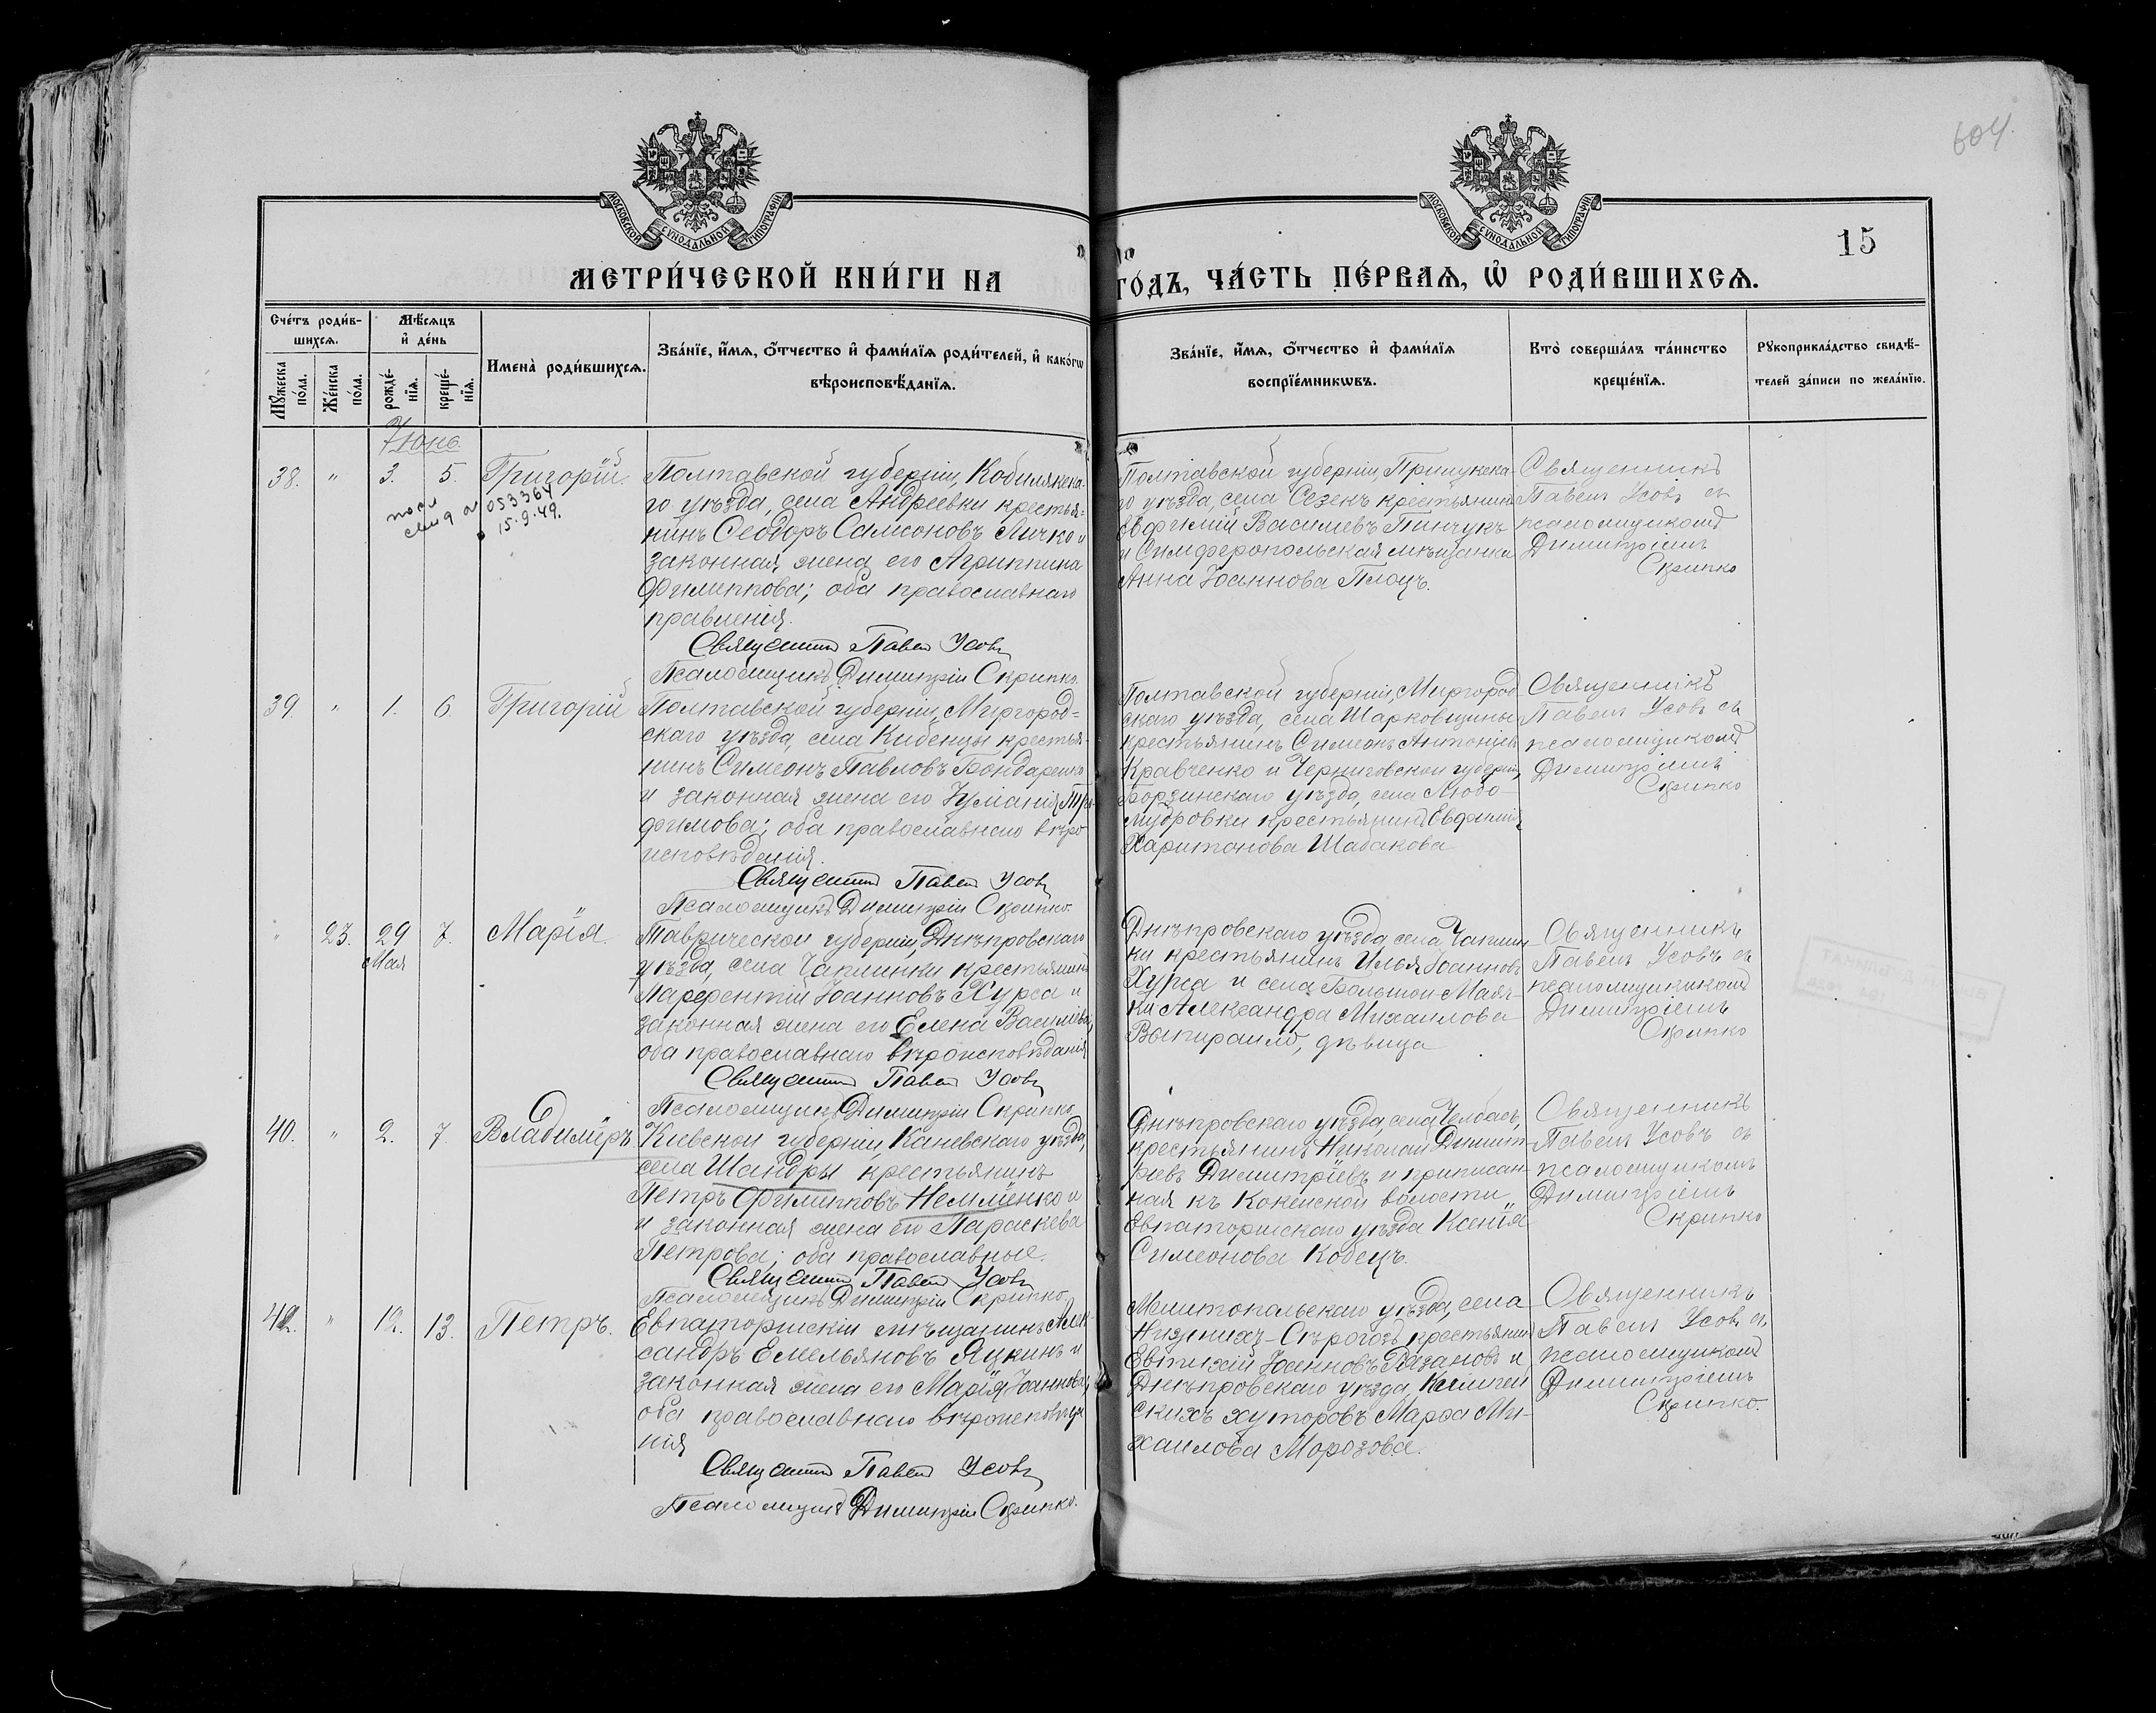 604
МОСКОВСКОЙ СѴНОДАЛЬНОЙ ТИПОГРАФІИ
МОСКОВСКОЙ СѴНОДАЛЬНОЙ ТИПОГРАФІИ
15
МЕТРИ́ЧЕСКОЙ КНИ́ГИ НА
ГО́ДЪ, ЧА́СТЬ ПЕ́РВАѦ, Ѡ҆ РОДИ́ВШИХСѦ.
Сче́тъ роди́в-
шихсѧ.
Мѣ́сѧцъ
и҆ де́нь
Мꙋ́жеска по́ла.
Же́нска по́ла.
рожде́-нїѧ.
креще́-нїѧ.
Имена̀ роди́вшихсѧ.
Зва́нїе, и҆́мѧ, ѻ҆́тчество и҆ фами́лїѧ роди́телей, и҆ како́гѡ
вѣроисповѣ́данїѧ.
Зва́нїе, и҆́мѧ, ѻ҆́тчество и҆ фами́лїѧ
воспрїе́мникѡвъ.
Кто̀ соверша́лъ та́инство
креще́нїѧ.
Рꙋкоприкла́дство свидѣ́-
телей за́писи по жела́нїю.
Іюнь.
38. " 3. 5. Григорій.
053364
15.9.49.
Полтавской губерніи, Кобилякска-
го уѣзда, села Андреевки крестья-
нинъ Ѳеодоръ Самсоновъ Личко и
законная жена его Агриппина
Филиппова; оба православнаго
правленія.
Священникъ Павелъ Усовъ
Псаломщикъ Димитрій Скрипко.
Полтавской губерніи, Прилукска-
го уѣзда, села Сезекъ крестьянинъ
Евфимій Василіевъ Пинчукъ
и Симферопольская мѣщанка
Анна Іоаннова Плоцъ.
Священникъ
Павелъ Усовъ съ
псаломщикомъ
Димитріемъ
Скрипко
39. " 1. 6. Григорій
Полтавской губерніи, Миргород-
скаго уѣзда, села Кибенцы крестья-
нинъ Симеонъ Павловъ Бондаренко
и законная жена его Іуліанія Тро-
фимова; оба православнаго вѣро
исповѣданія.
Священникъ Павелъ Усовъ
Псаломщикъ Димитрій Скрипко.
Полтавской губерніи, Миргород-
скаго уѣзда, села Шарковщины
крестьянинъ Симеонъ Антоніевъ
Кравченко и Черниговской губерніи,
Борзинскаго уѣзда, села Любо-
мудровки крестьянка Евфимія
Харитонова Шабакова
Священникъ
Павелъ Усовъ съ
псаломщикомъ
Димитріемъ
Скрипко
" 23. 29 7. Марія.
Мая
Таврической губерніи, Днѣпровскаго
уѣзда, села Чаплинки крестьянинъ
Парфентій Іоанновъ Хурса и
законная жена его Елена Василіева,
оба православнаго вѣроисповѣданія
Священникъ Павелъ Усовъ
Псаломщикъ Димитрій Скрипко
Днѣпровскаго уѣзда села Чаплин-
ки крестьянинъ Илья Іоанновъ
Хурса и села Большой Мая-
Александра Михаилова
дѣвица
Священникъ
Павелъ Усовъ съ
псаломщикомъ
Димитріемъ
Скрипко
40. " 2. 7. Владиміръ
Кіевской губерніи, Каневскаго уѣзда,
села Шандры крестьянинъ
Петръ Филипповъ Немленко и
и законная жена его Параскева
Петрова; оба православные.
Священникъ Павелъ Усовъ
Псаломщикъ Димитрій Скрипко
Днѣпровскаго уѣзда, села Челбасъ,
крестьянинъ Николай Димит-
ріевъ Димитріевъ и приписан-
ная къ Кокейской волости
Евпаторійскаго уѣзда Ксенія
Симеонова Кобецъ.
Священникъ
Павелъ Усовъ съ
псаломщикомъ
Димитріемъ
Скрипко
" 12. 13. Петръ.
Евпаторійскій мѣщанинъ Алек-
сандръ Емельяновъ Яцкинъ и
законная жена его Марія Іоаннова,
оба православнаго вѣроисповѣда
нія
Священникъ Павелъ Усовъ
Псаломщикъ Димитрій Скрипко.
Мелитопольскаго уѣзда, села
Нижнихъ-Сѣрогозъ крестьянинъ
Евтихій Іоанновъ Рязановъ и
Днѣпровскаго уѣзда,
скихъ хуторовъ Марѳа Ми-
хаилова Морозова.
Священникъ
Павелъ Усовъ съ
псаломщикомъ
Димитріемъ
Скрипко.